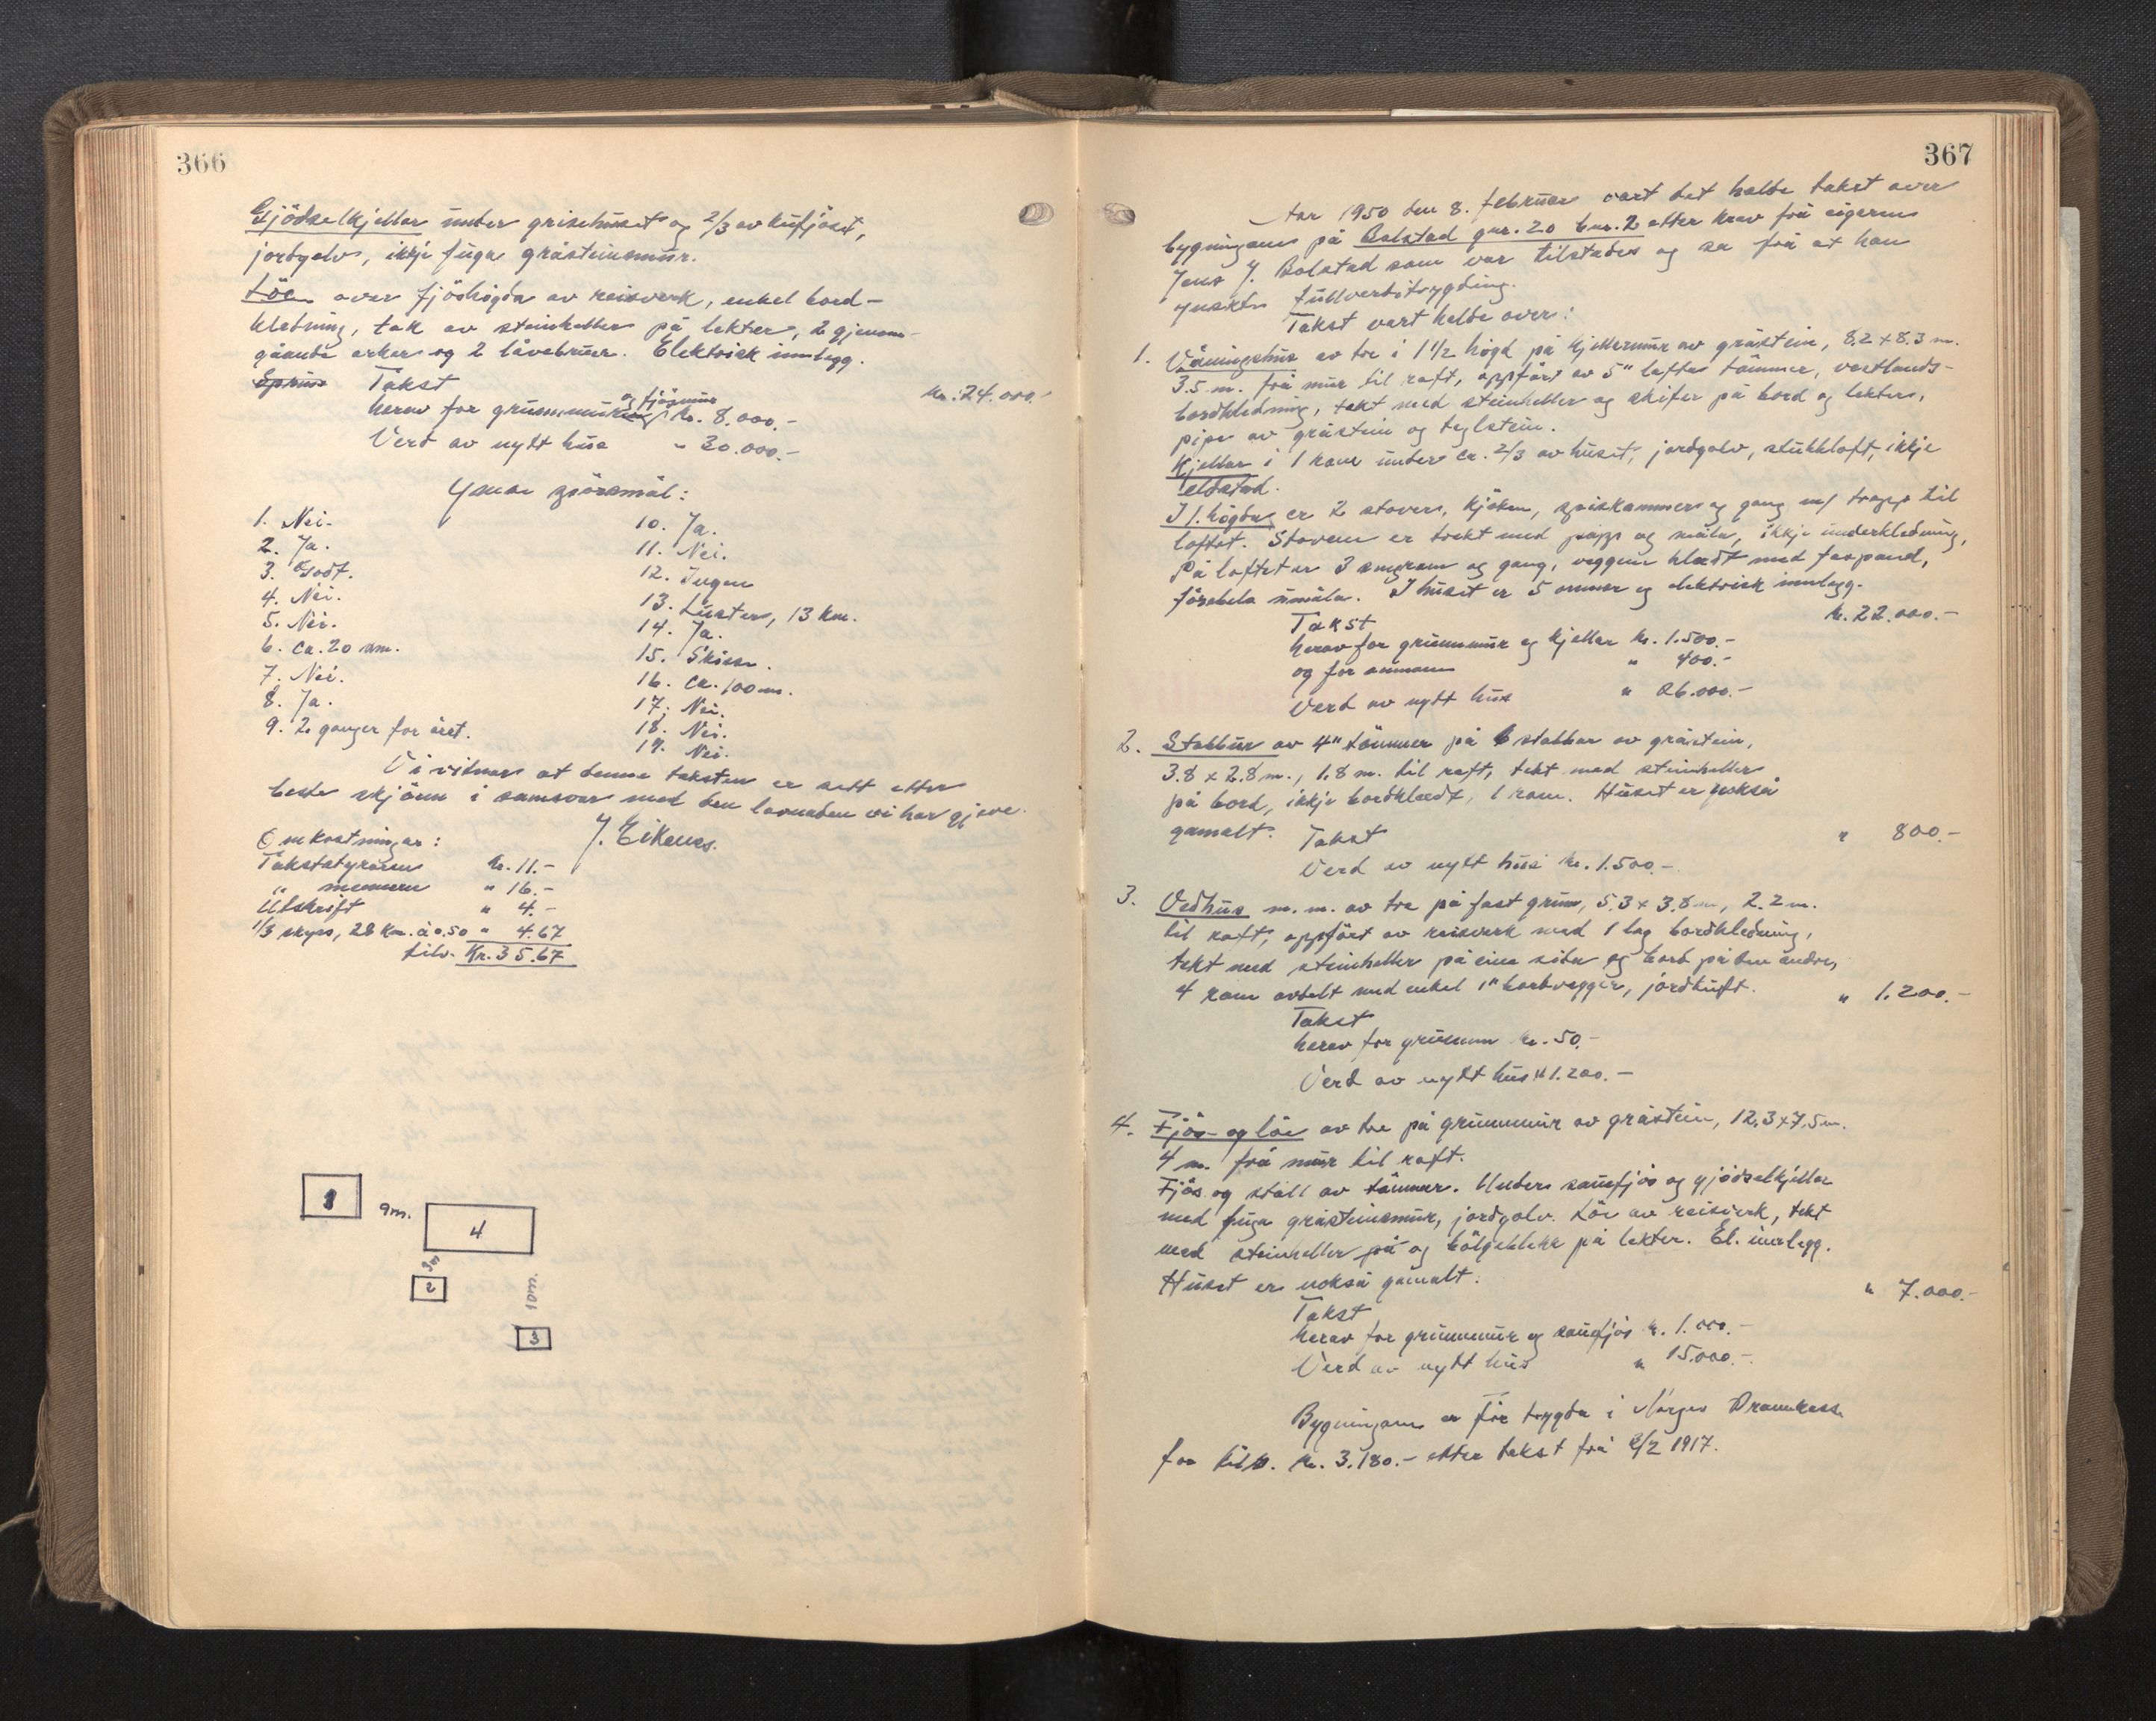 366
Gjödselkjellar under grisehuset og 2/3 av kufjöset,
jordgolv, ikkje fuga gråsteinsmur.
Löe over fjöshögda av reisverk, enkel bord-
kledning, tak av steinheller på lekter, 2 gjenom-
gåande arker og 2 låvebruer. Elektrisk innlegg.
Takst kr. 24.000.-
herav for grunnmur og fjösmur kr. 8.000.-
Verd av nytt hus " 30.000.-
Ymse spörsmål:
1. Nei.
2. Ja.
3. Godt.
4. Nei.
5. Nei.
6. ca. 20 m.
7. Nei.
8. Ja.
9. 2 ganger for året.
10. Ja.
11. Nei.
12. Ingen
13. Luster, 13 km.
14. Ja.
15.
16. ca. 100 m.
17. Nei.
18. Nei.
19. Nei.
Vi vitnar at denne taksten er sett etter
beste skjönn i samsvar med den lovnaden vi har gjeve.
J. Eikenes.
Omkostningar:
Takstatyraren kr. 11.-
" mennene " 16.-
Utskrift " 4.-
1/3 skyss, 28 km. à 0.50 " 4.67
tils. Kr. 35.67
1
9m.
4
3m
2
10m.
3
367
År 1950 den 8. februar vart det halde takst over
bygningane på Bolstad gnr. 20 bnr. 2 etter krav frå eigaren
Jens J. Bolstad som var tilstades og sa frå at han
ynskte fullverditrygding.
Takst vart halde over:
1. Våningshus av tre i 1 1/2 högd på kjellermur av gråstein, 8.2 x 8.3 m.
3.5 m. frå mur til raft, oppfört av 5" lafta tömmer, vestlands-
bordkledning, tekt med steinheller og skifer på bord og lekter,
pipe av gråstein og teglstein.
Kjellar i 1 rom under ca. 2/3 av huset, jordgolv, stubbloft, ikkje
eldstad.
I 1. högda er 2 stover, kjöken, spiskammers og gang m/ trapp til
loftet. Stovene er trekt med papp og måla, ikkje underkledning,
På loftet er 3 smårom og gang, veggene kledt med faspanel,
umåla. I huset er 5 omnar og elektrisk innlegg.
Takst kr. 22.000.-
herav for grunnmur og kjellar kr. 1.500.-
og for omnane " 400.-
Verd av nytt hus " 26.000.-
2. Stabbur av 4" tömmer på 6 stabbar av gråstein,
3.8 x 2.8 m., 1.8 m. til raft, tekt med steinheller
på bord, ikkje bordkledt, 1 rom. Huset er nokså
gamalt.
Takst " 800.-
Verd av nytt hus kr. 1.500.-
3. Vedhus m. m. av tre på fast grunn, 5.3 x 3.8 m, 2.2 m.
til raft, oppfört av reisverk med 1 lag bordkledning,
tekt med steinheller på eine sida og bord på den andre,
4 rom avdelt med enkel 1" bordvegger,
Takst " 1.200.-
herav for grunnen kr. 50.-
Verd av nytt hus " 1.200.-
4. Fjös- og löe av tre på grunnmur av gråstein, 12.3 x 7.5 m.
4 m. frå mur til raft.
Fjös og stall av tömmer. Under sauefjös og gjödselkjellar
med fuga gråsteinsmur, jordgolv. Löe av reisverk, tekt
med steinheller på og bölgeblekk på lekter. El. innlegg.
Huset er nokså gamalt.
Takst " 7.000.-
herav for grunnmur og sauefjös kr. 1.000.-
Verd av nytt hus " 15.000.-
Bygningane er för trygda i Norges Brannkasse
for tils. kr. 3.180.- etter takst frå 2/2 1917.